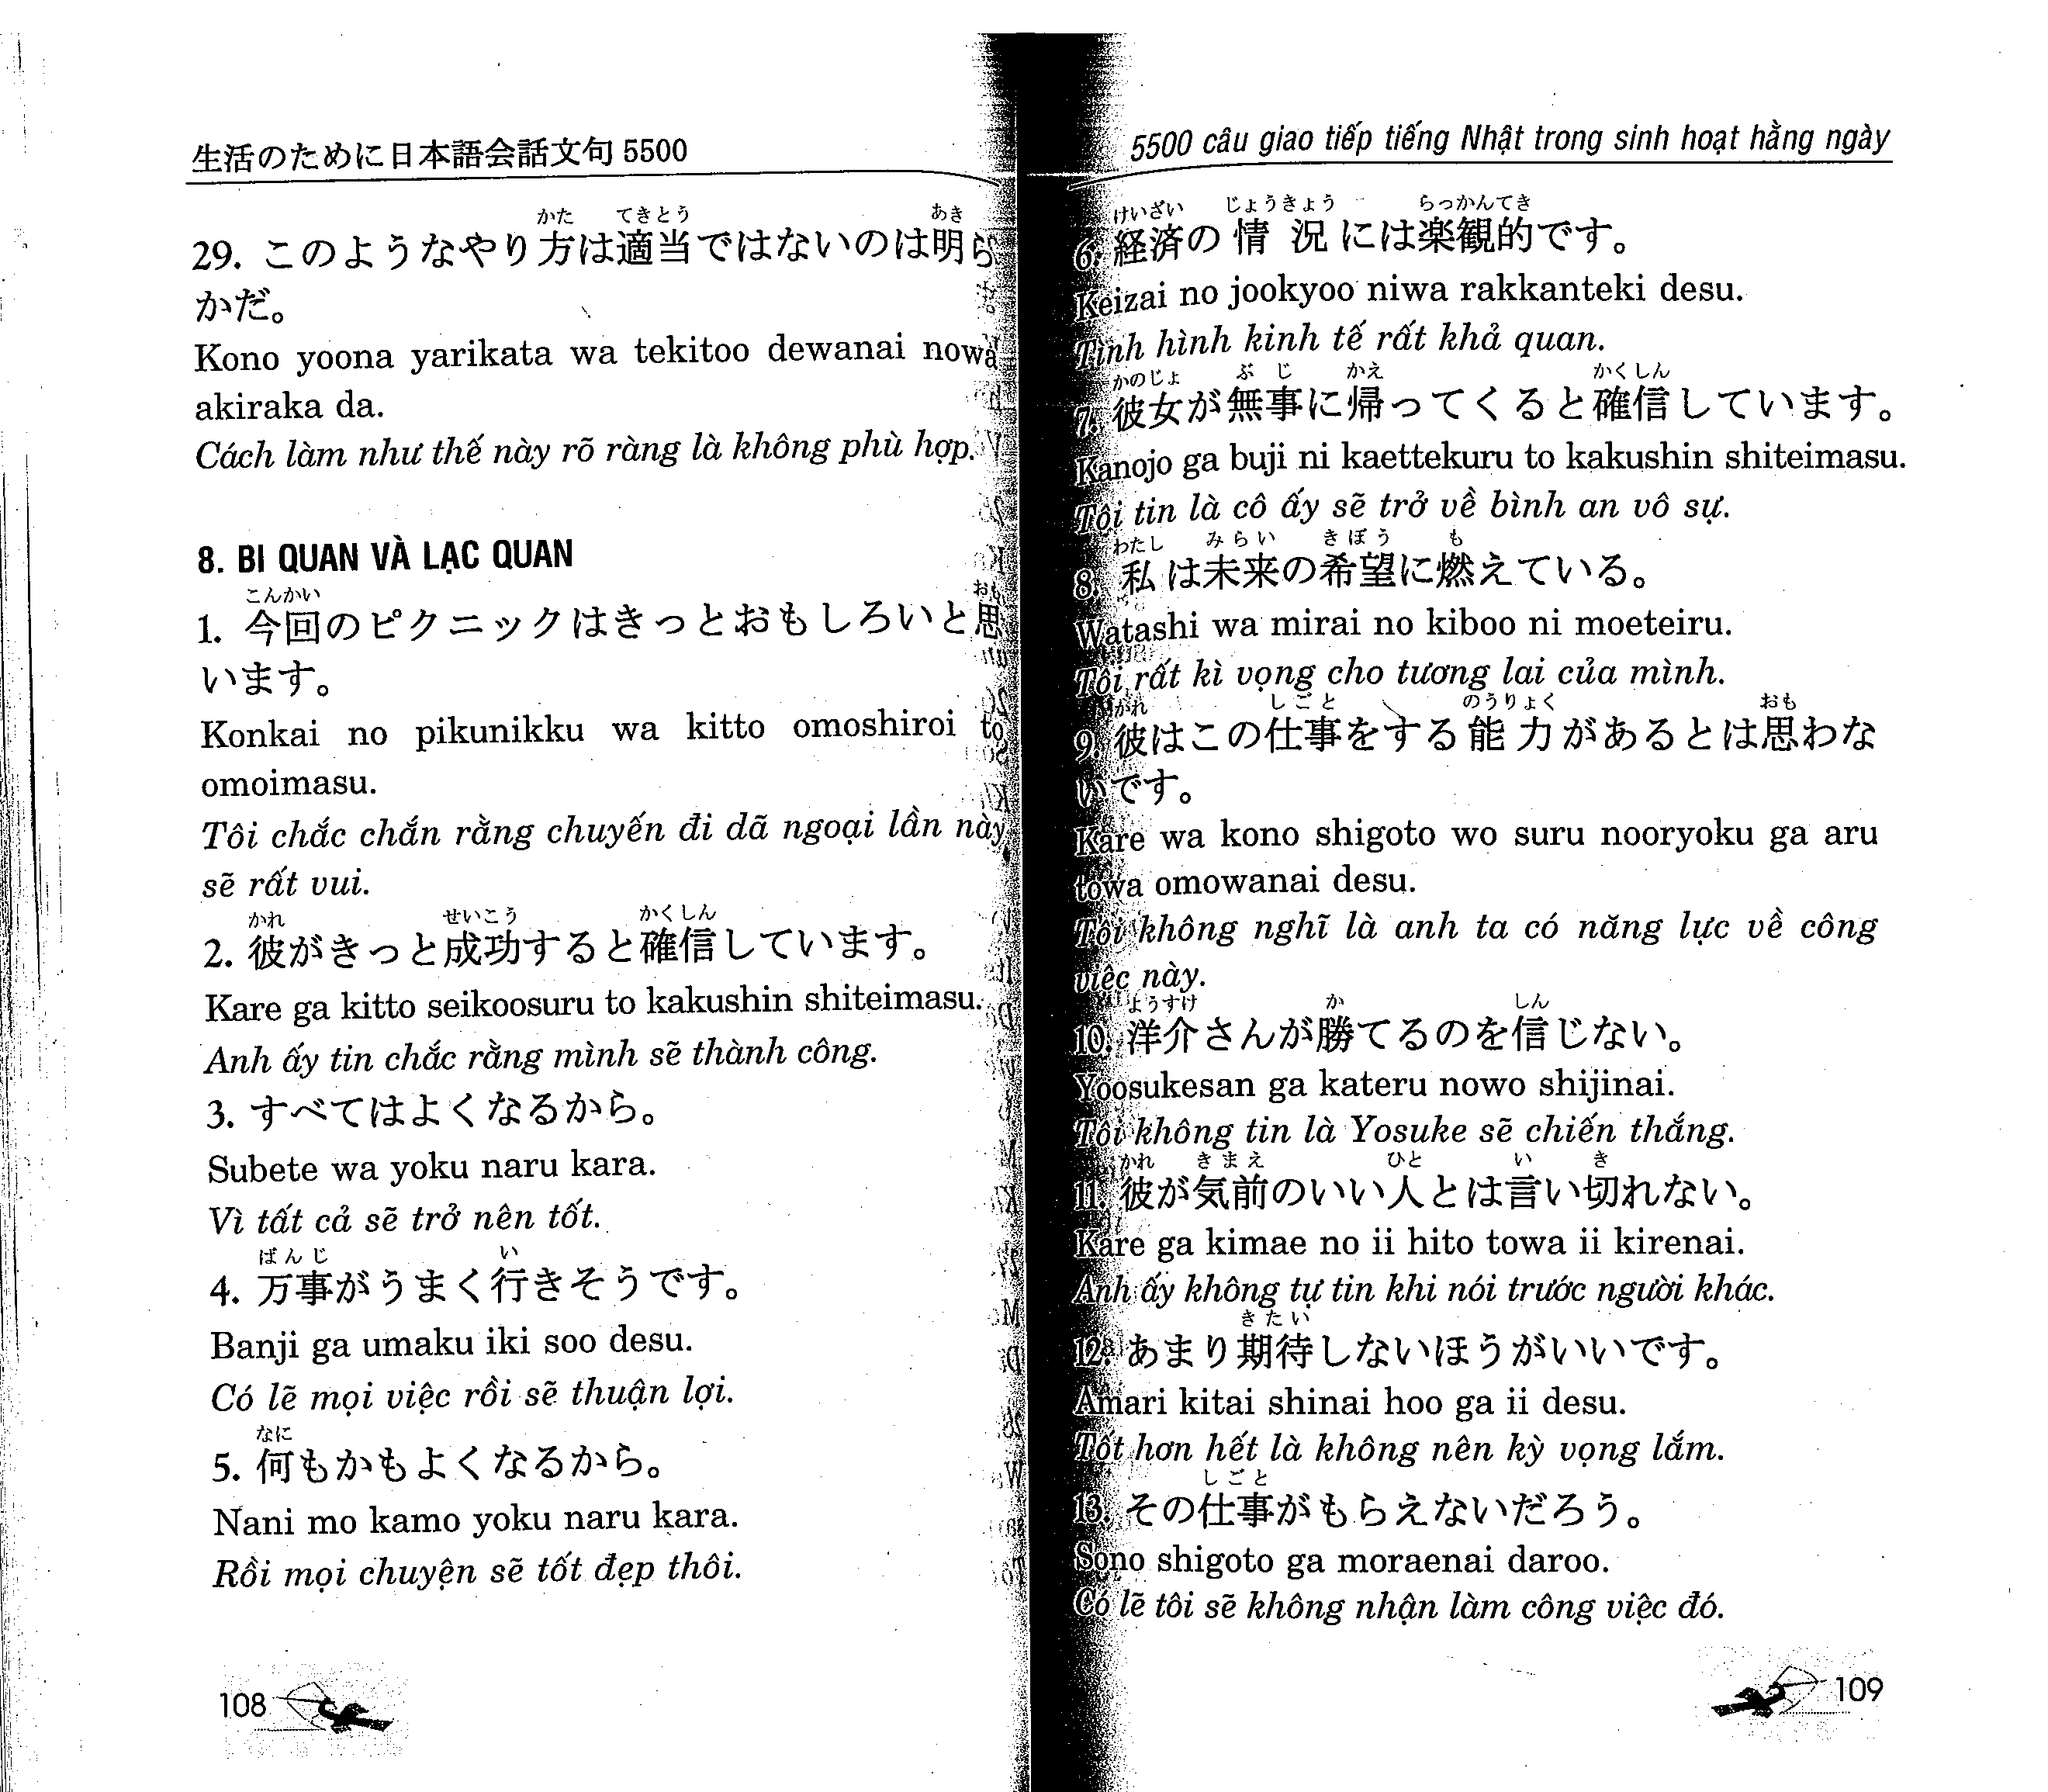 生活のために日本語会話文句 5500
かた てきとう あき
29. このようなやり方は適当ではないのは明ら
かだ。
Kono yoona yarikata wa tekitoo dewanai nowa
akiraka da.
Cách làm như thế này rõ ràng là không phù hợp.
8. BI QUAN VÀ LẠC QUAN
こんかい おも
1. 今回のピクニックはきっとおもしろいと思
います。
Konkai no pikunikku wa kitto omoshiroi to
omoimasu.
Tôi chắc chắn rằng chuyến đi dã ngoại lần này
sẽ rất vui.
かれ せいこう かくしん
2. 彼がきっと成功すると確信しています。
Kare ga kitto seikoosuru to kakushin shiteimasu.
Anh ấy tin chắc rằng mình sẽ thành công.
3. すべてはよくなるから。
Subete wa yoku naru kara.
Vì tất cả sẽ trở nên tốt.
ばんじ い
4. 万事がうまく行きそうです。
Banji ga umaku iki soo desu.
Có lẽ mọi việc rồi sẽ thuận lợi.
なに
5. 何もかもよくなるから。
Nani mo kamo yoku naru kara.
Rồi mọi chuyện sẽ tốt đẹp thôi.
108
5500 câu giao tiếp tiếng Nhật trong sinh hoạt hằng ngày
けいざい じょうきょう らっかんてき
6. 経済の情況には楽観的です。
Keizai no jookyoo niwa rakkanteki desu.
Tình hình kinh tế rất khả quan.
かのじょ ぶじ かえ かくしん
7. 彼女が無事に帰ってくると確信しています。
Kanojo ga buji ni kaettekuru to kakushin shiteimasu.
Tôi tin là cô ấy sẽ trở về bình an vô sự.
わたし みらい きぼう も
8. 私は未来の希望に燃えている。
Watashi wa mirai no kiboo ni moeteiru.
Tôi rất kì vọng cho tương lai của mình.
かれ しごと のうりょく おも
9. 彼はこの仕事をする能力があるとは思わな
いです。
Kare wa kono shigoto wo suru nooryoku ga aru
towa omowanai desu.
Tôi không nghĩ là anh ta có năng lực về công
việc này.
ようすけ か しん
10. 洋介さんが勝てるのを信じない。
Yoosukesan ga kateru nowo shijinai.
Tôi không tin là Yosuke sẽ chiến thắng.
かれ きまえ ひと い き
11. 彼が気前のいい人とは言い切れない。
Kare ga kimae no ii hito towa ii kirenai.
Anh ấy không tự tin khi nói trước người khác.
きたい
12. あまり期待しないほうがいいです。
Amari kitai shinai hoo ga ii desu.
Tốt hơn hết là không nên kỳ vọng lắm.
しごと
13. その仕事がもらえないだろう。
Sono shigoto ga moraenai daroo.
Có lẽ tôi sẽ không nhận làm công việc đó.
109